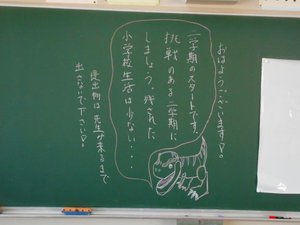 おはようございます!
二学期のスタートです。
挑戦のある二学期に
しましょう。残された
小学校生活は少ない・・・
提出物は先生が来るまで
出さないで下さい!